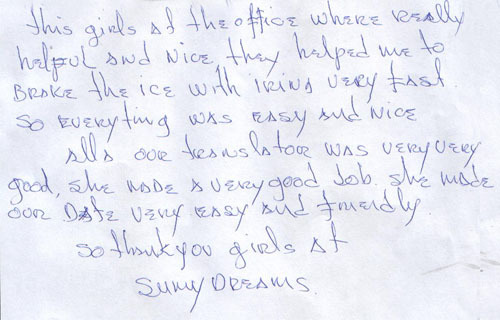 this girls at the office where really
helpful and nice, they helped me to
Brake the ice with irina very fast.
so everything was easy and nice
alla our translator was very very
good, she made a very good Job. she made
our Date very easy and friendly
so thank you girls at
Sumy Dreams.